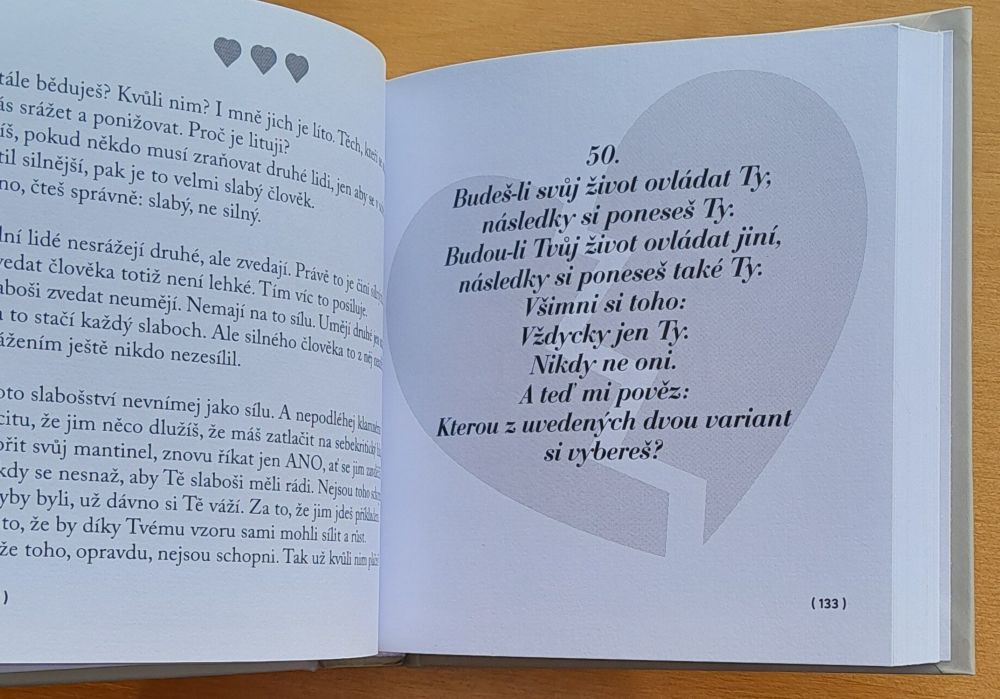 tále běduješ? Kvůli nim? I mně jich je líto. Těch, kteří se
ás srážet a ponižovat. Proč je lituji?
íš, pokud někdo musí zraňovat druhé lidi, jen aby se
til silnější, pak je to velmi slabý člověk.
no, čteš správně: slabý, ne silný.
lní lidé nesrážejí druhé, ale zvedají. Právě to je činí
vedat člověka totiž není lehké. Tím víc to posiluje.
aboši zvedat neumějí. Nemají na to sílu. Umějí druhé jen
to stačí každý slaboch. Ale silného člověka to z něj
ážením ještě nikdo nezesílil.
oto slabošství nevnímej jako sílu. A nepodléhej
citu, že jim něco dlužíš, že máš zatlačit na sebekritický
ořit svůj mantinel, znovu říkat jen ANO, ať se jim
kdy se nesnaž, aby Tě slaboši měli rádi. Nejsou toho
yby byli, už dávno si Tě váží. Za to, že jim jdeš příkladem.
to, že by díky Tvému vzoru sami mohli sílit a růst.
že toho, opravdu, nejsou schopni. Tak už kvůli nim
)
50.
Budeš-li svůj život ovládat Ty,
následky si poneseš Ty.
Budou-li Tvůj život ovládat jiní,
následky si poneseš také Ty.
Všimni si toho:
Vždycky jen Ty.
Nikdy ne oni.
A teď mi pověz:
Kterou z uvedených dvou variant
si vybereš?
( 133 )